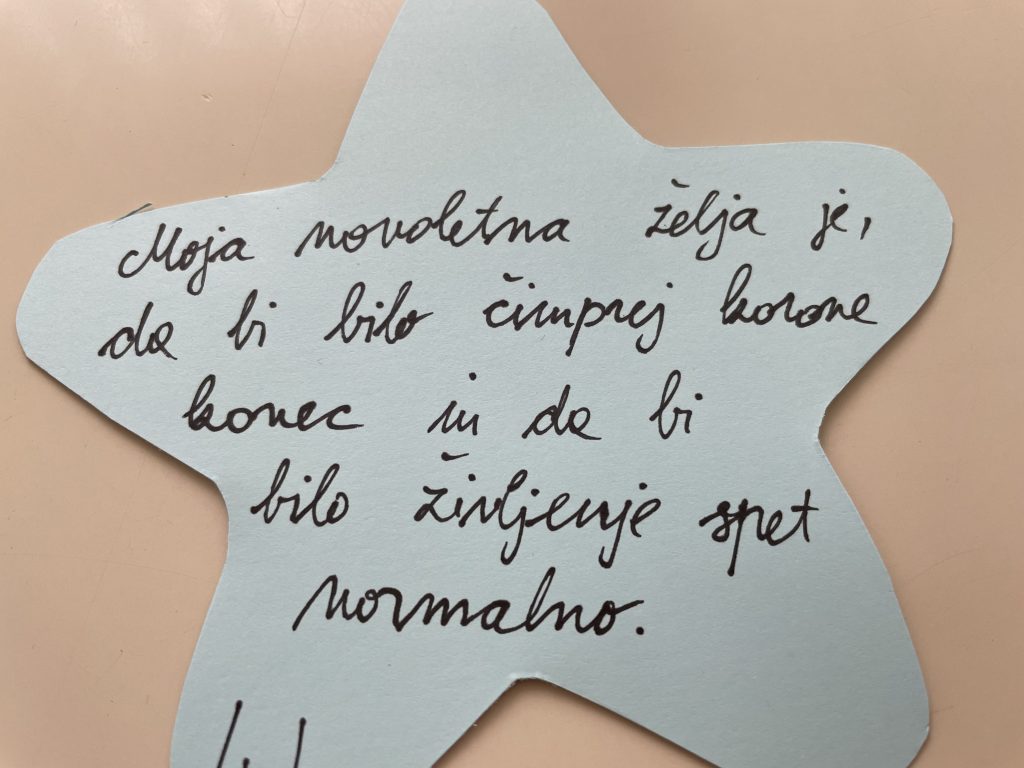 Moja novoletna želja je,
da bi bilo čimprej korone
konec in da bi
bilo življenje spet
normalno.